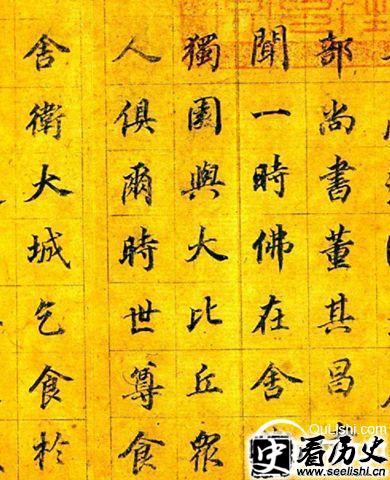 部尚書董其昌
聞一時佛在舍
獨園與大比丘眾
人俱爾時世尊食
舍衛大城乞食於
QuLishi.com
史看历史
www.seelishi.com